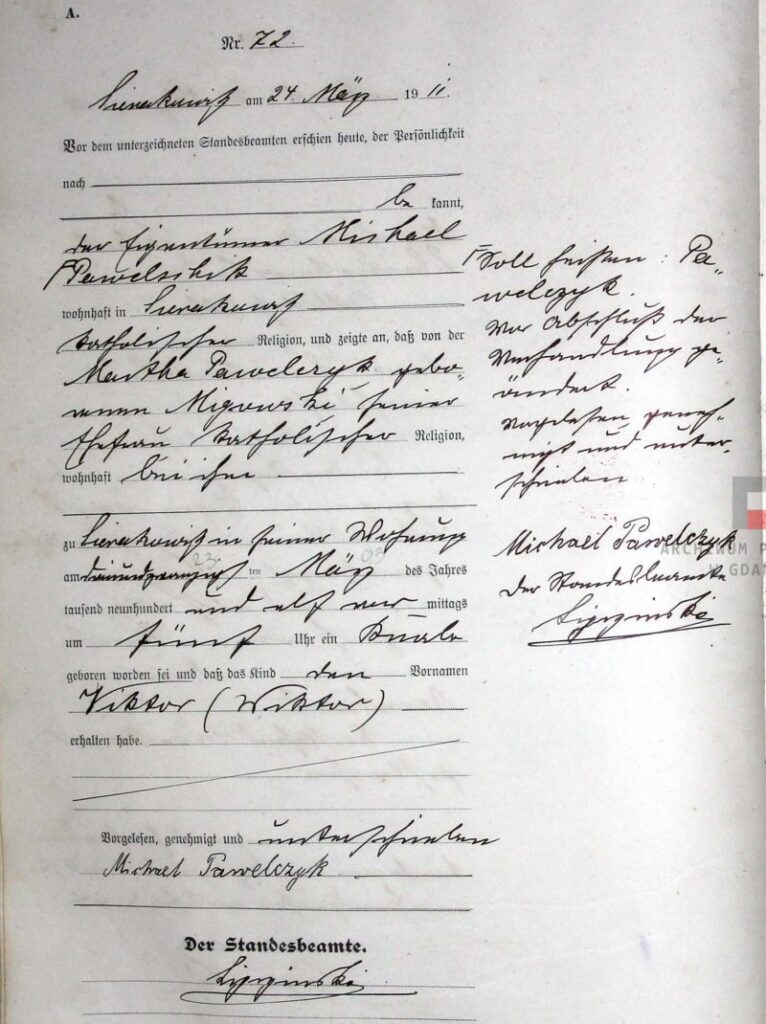 A.
Nr. 72.
Sierakowitz am 24. März 1911.
Vor dem unterzeichneten Standesbeamten erschien heute, der Persönlichkeit
nach
be kannt,
der Eigentümer Michael
Pawelschik
wohnhaft in Sierakowitz
katholischer Religion, und zeigte an, daß von der
Martha Pawelczyk, gebo-
renen Migowski, seiner
Ehefrau katholischer Religion,
wohnhaft bei ihm
zu Sierakowitz in seiner Wohnung
am dreiundzwanzigsten März des Jahres
tausend neunhundert und elf vor mittags
um fünf Uhr ein Knabe
geboren worden sei und daß das Kind den Vornamen
Viktor (Wiktor)
erhalten habe.
Vorgelesen, genehmigt und unterschrieben
Michael Pawelczyk
Der Standesbeamte.
Lipzinski
Soll heißen: Pa-
welczyk.
Vor Abschluß der
Verhandlung ge-
ändert.
Vorgelesen, geneh-
migt und unter-
schrieben
Michael Pawelczyk
Der Standesbeamte
Lipzinski
ARCHIWUM P
W GDA